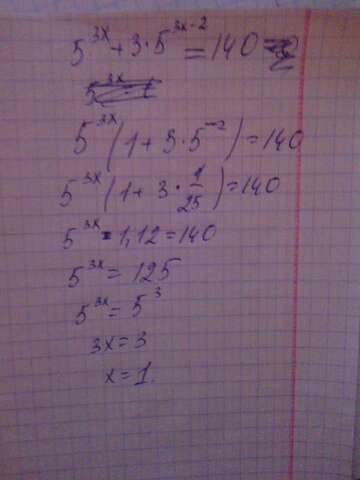 5^{3x} + 3 · 5^{3x-2} = 140
5^{3x} (1 + 3 · 5^{-2}) = 140
5^{3x} (1 + 3 · \frac{1}{25}) = 140
5^{3x} · 1,12 = 140
5^{3x} = 125
5^{3x} = 5^3
3x = 3
x = 1.